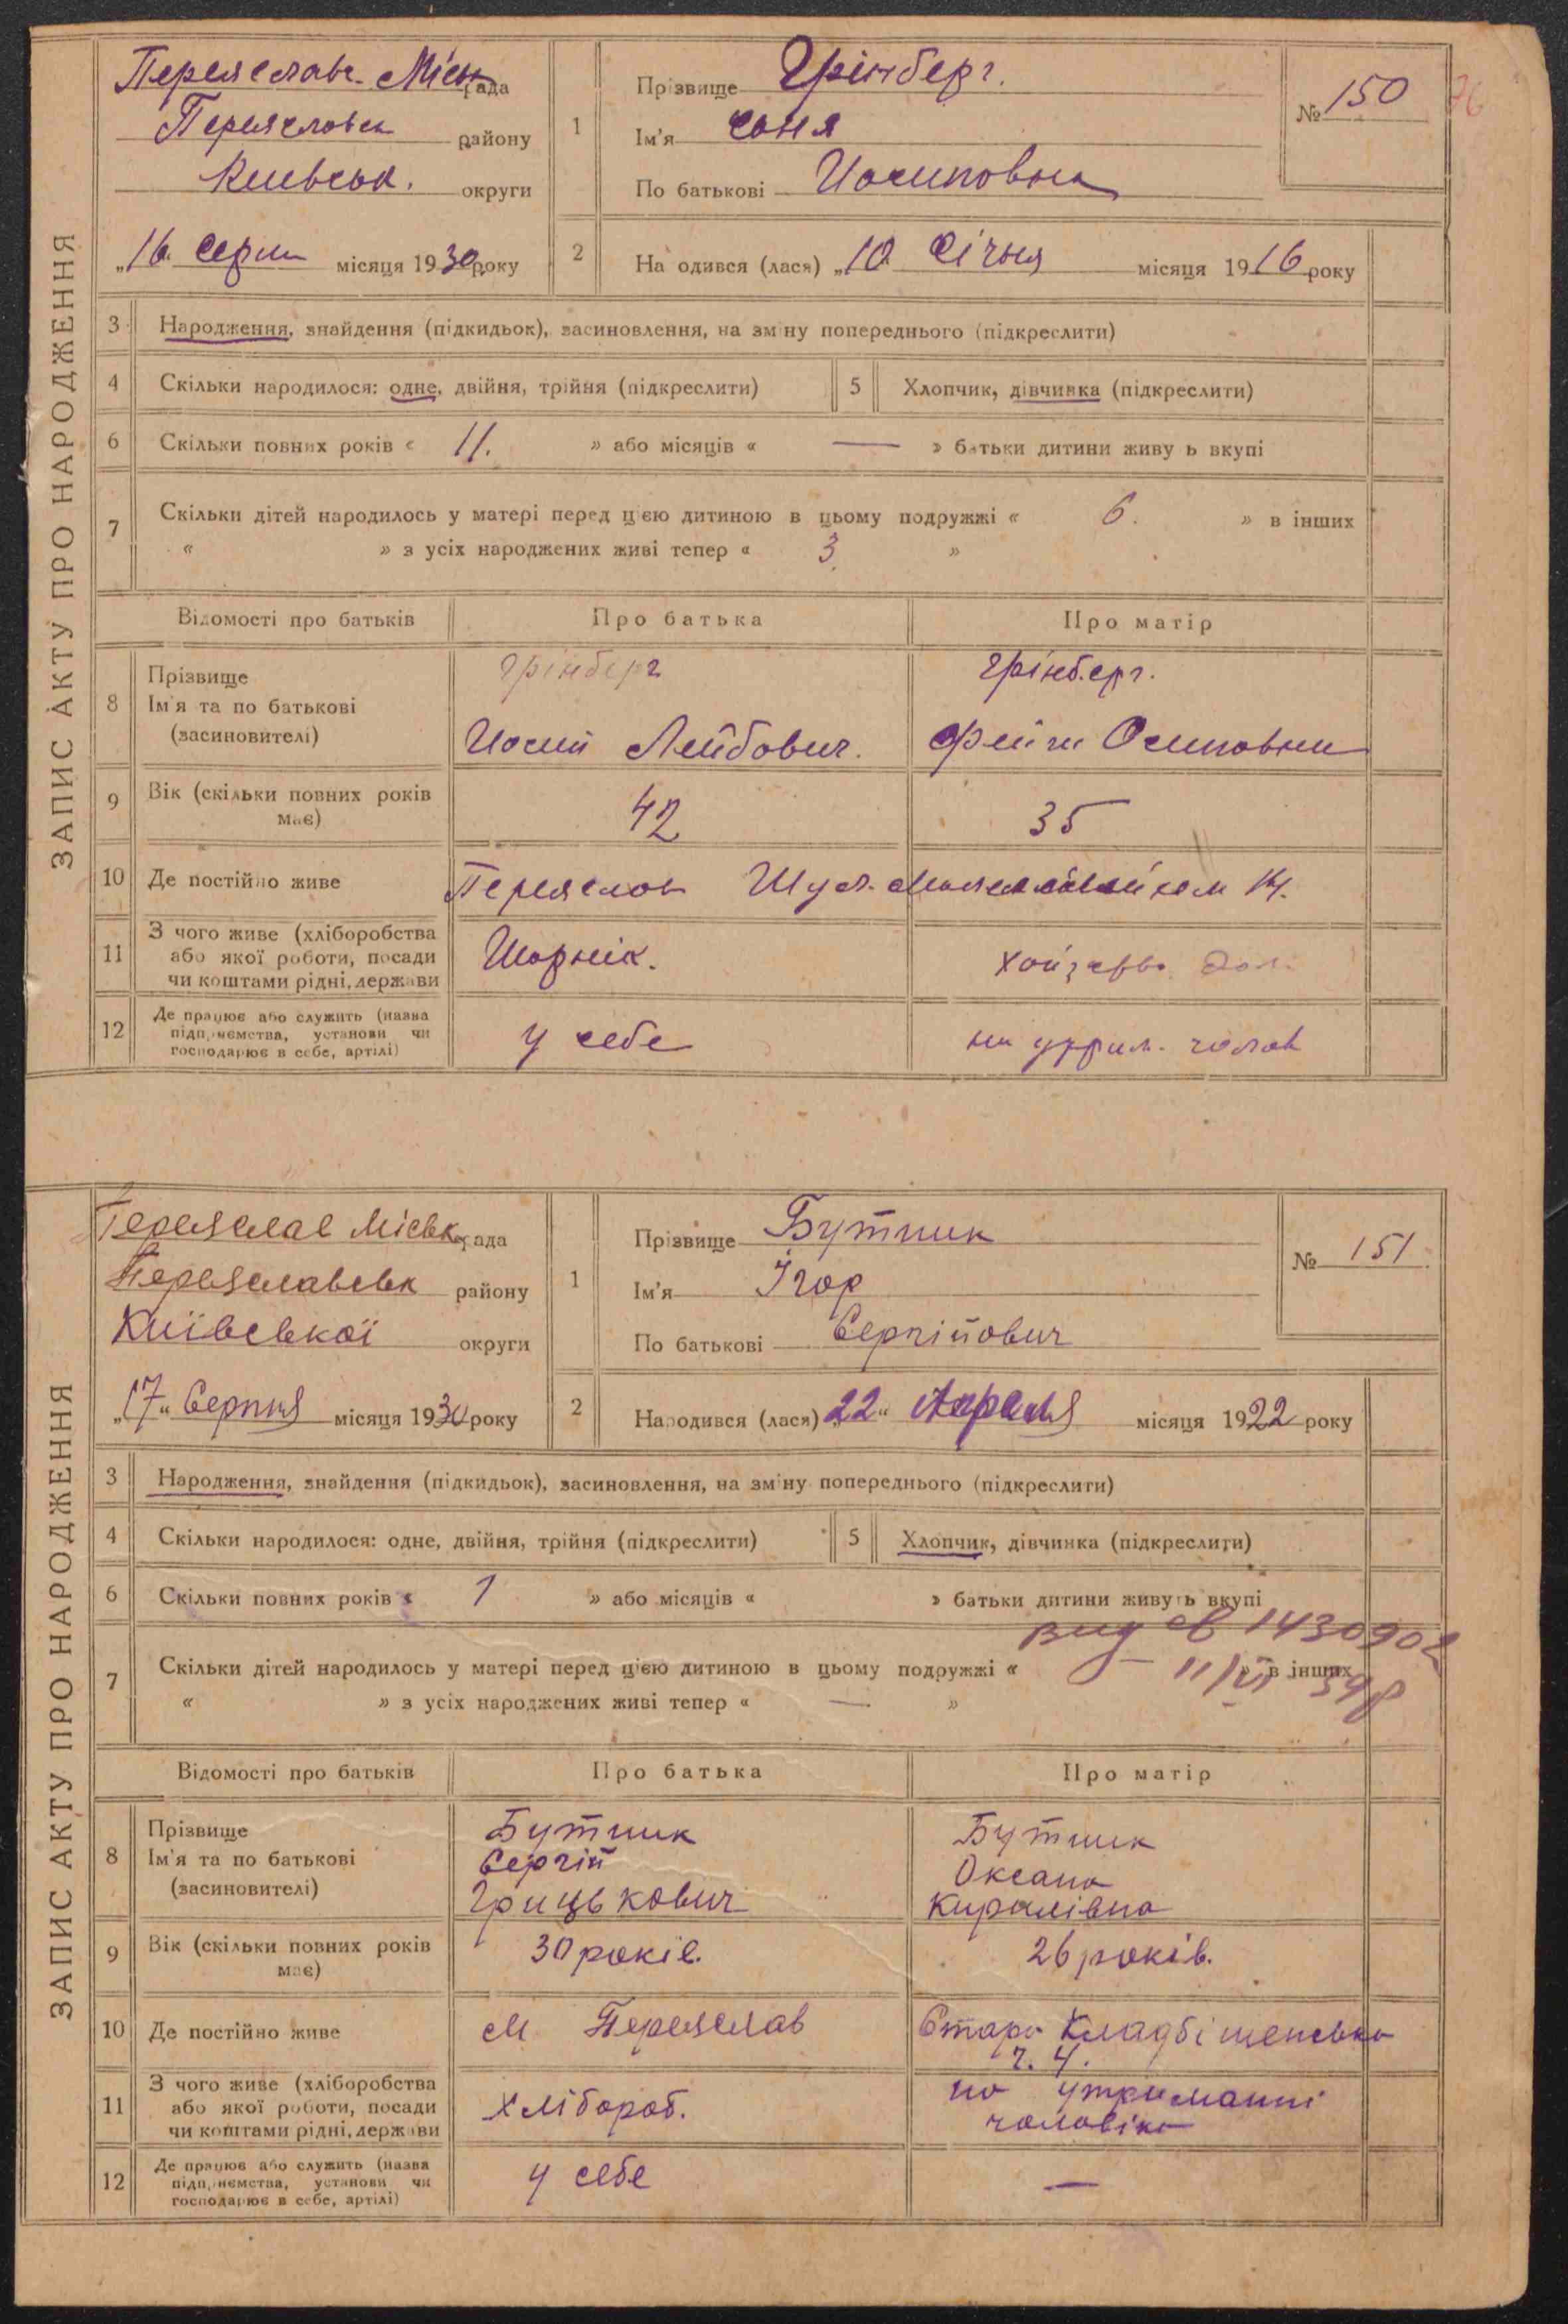 ЗАПИС АКТУ ПРО НАРОДЖЕННЯ
Переяславс. Міськ рада
Переяславськ району
Київськ. округи
„16 Серпн місяця 1930 року
1 Прізвище Грінберг.
Ім'я Соня
По батькові Иосиповна
№ 150
76
2 На одився (лася) „10 Січня місяця 1916 року
3 Народження, знайдення (підкидьок), засиновлення, на зміну попереднього (підкреслити)
4 Скільки народилося: одне, двійня, трійня (підкреслити) 5 Хлопчик, дівчинка (підкреслити)
6 Скільки повних років « 11. » або місяців « — » батьки дитини живу ь вкупі
7 Скільки дітей народилось у матері перед цією дитиною в цьому подружжі « 6. » в інших
« » з усіх народжених живі тепер « 3 »
Відомості про батьків Про батька Про матір
8 Прізвище Ім'я та по батькові (засиновителі)
Грінберг Грінберг.
Иосип Лейбович. Фейга Осиповна
9 Вік (скільки повних років має) 42 35
10 Де постійно живе Переяслав
11 З чого живе (хліборобства або якої роботи, посади чи коштами рідні, держави
Шорнік.
12 Де працює або служить (назва підприємства, установи чи господарює в себе, артілі)
у себе на утрим. чолов
ЗАПИС АКТУ ПРО НАРОДЖЕННЯ
Переяслав Міськ рада
Переяславськ району
Київської округи
„17" Серпня місяця 1930 року
1 Прізвище Бутник
Ім'я Ігор
По батькові Сергійович
№ 151
2 Народився (лася) „22" Апреля місяця 1922 року
3 Народження, знайдення (підкидьок), засиновлення, на зміну попереднього (підкреслити)
4 Скільки народилося: одне, двійня, трійня (підкреслити) 5 Хлопчик, дівчинка (підкреслити)
6 Скільки повних років « 1 » або місяців « » батьки дитини живуть вкупі
вид св 1430902
7 Скільки дітей народилось у матері перед цією дитиною в цьому подружжі « » в інших
11/VI 39р
« » з усіх народжених живі тепер « — »
Відомості про батьків Про батька Про матір
8 Прізвище Ім'я та по батькові (засиновителі)
Бутник Бутник
Сергій Оксана
Грицькович Кирилівна
9 Вік (скільки повних років має) 30 років. 26 років.
10 Де постійно живе м Переяслав Старо Кладбіщенська
ч. 4.
11 З чого живе (хліборобства або якої роботи, посади чи коштами рідні, держави
Хлібороб. на утриманні
чоловіка
12 Де працює або служить (назва підприємства, установи чи господарює в себе, артілі)
у себе —